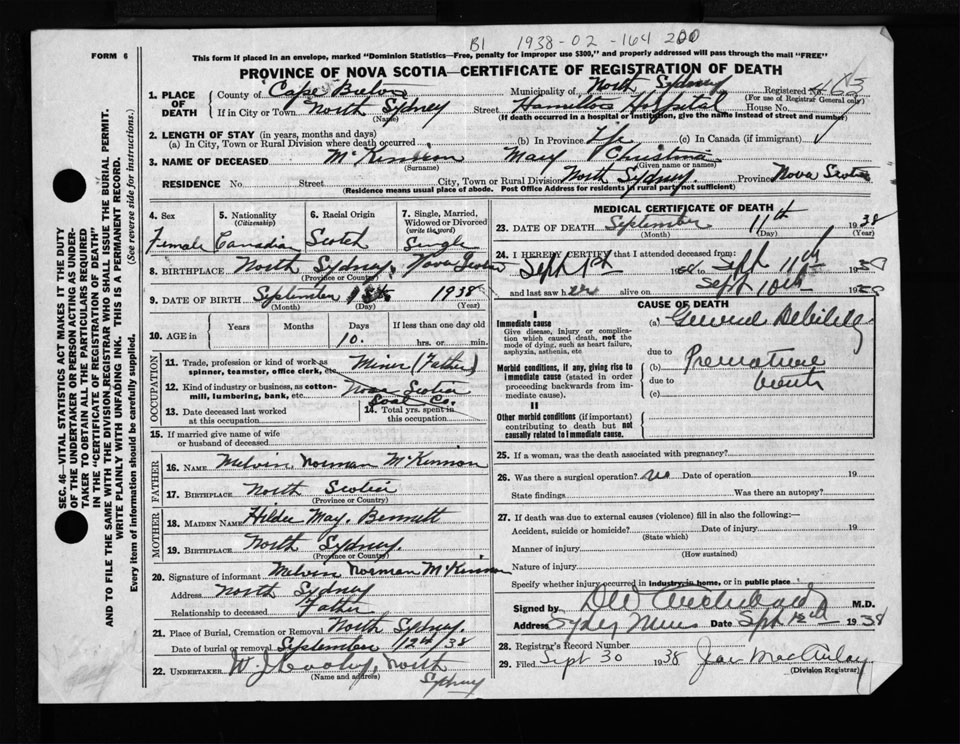 B1 1938-02-164 200
FORM 6
This form if placed in an envelope, marked "Dominion Statistics—Free, penalty for improper use $300," and properly addressed will pass through the mail "FREE"
PROVINCE OF NOVA SCOTIA—CERTIFICATE OF REGISTRATION OF DEATH
1. PLACE OF DEATH
County of Cape Breton Municipality of North Sydney Registered No. 463
(For use of Registrar General only)
If in City or Town North Sydney Street Hamilton Hospital House No.
(Name) (If death occurred in a hospital or institution, give the name instead of street and number)
2. LENGTH OF STAY (in years, months and days)
(a) In City, Town or Rural Division where death occurred (b) In Province Life (c) In Canada (if immigrant)
3. NAME OF DECEASED McKinnon Mary Christina
(Surname) (Given name or names)
RESIDENCE No. Street City, Town or Rural Division North Sydney Province Nova Scotia
(Residence means usual place of abode. Post Office Address for residents in rural parts not sufficient)
4. Sex
Female
5. Nationality
(Citizenship)
Canadian
6. Racial Origin
Scotch
7. Single, Married, Widowed or Divorced
(write the word)
Single
8. BIRTHPLACE North Sydney, Nova Scotia
(Province or Country)
9. DATE OF BIRTH September 1938
(Month) (Day) (Year)
10. AGE in
Years Months Days If less than one day old
10. hrs. or min.
OCCUPATION
11. Trade, profession or kind of work as spinner, teamster, office clerk, etc. Miner (Father)
12. Kind of industry or business, as cotton-mill, lumbering, bank, etc. Nova Scotia Coal Co.
13. Date deceased last worked at this occupation
14. Total yrs. spent in this occupation
15. If married give name of wife or husband of deceased
FATHER
16. NAME Melvin Norman McKinnon
17. BIRTHPLACE North Scotia
(Province or Country)
MOTHER
18. MAIDEN NAME Hilda May Bennett
19. BIRTHPLACE North Sydney.
(Province or Country)
20. Signature of informant Melvin Norman McKinnon
Address North Sydney
Relationship to deceased Father
21. Place of Burial, Cremation or Removal North Sydney.
Date of burial or removal September 12th/38
22. UNDERTAKER W. J. North Sydney
(Name and address)
MEDICAL CERTIFICATE OF DEATH
23. DATE OF DEATH September 11th 1938
(Month) (Day) (Year)
24. I HEREBY CERTIFY that I attended deceased from:
Sept 1st 1938 to Sept 11th 1938
and last saw her alive on Sept 10th 1938
CAUSE OF DEATH
I
Immediate cause
Give disease, injury or complication which caused death, not the mode of dying, such as heart failure, asphyxia, asthenia, etc
(a) General Debility
due to
Morbid conditions, if any, giving rise to immediate cause (stated in order proceeding backwards from immediate cause).
(b) Premature
due to birth
(c)
II
Other morbid conditions (if important) contributing to death but not causally related to immediate cause.
25. If a woman, was the death associated with pregnancy?
26. Was there a surgical operation? No Date of operation 19
State findings Was there an autopsy?
27. If death was due to external causes (violence) fill in also the following:—
Accident, suicide or homicide? Date of injury 19
(State which)
Manner of injury
(How sustained)
Nature of injury
Specify whether injury occurred in industry, in home, or in public place
Signed by D W Archibald M.D.
Address Sydney Mines Date Sept 12th 1938
28. Registrar's Record Number
29. Filed Sept 30 1938 MacAulay
(Division Registrar)
SEC. 46—VITAL STATISTICS ACT MAKES IT THE DUTY
OF THE UNDERTAKER OR PERSON ACTING AS UNDER-
TAKER TO OBTAIN ALL THE PARTICULARS REQUIRED
IN THE "CERTIFICATE OF REGISTRATION OF DEATH"
AND TO FILE THE SAME WITH THE DIVISION REGISTRAR WHO SHALL ISSUE THE BURIAL PERMIT.
WRITE PLAINLY WITH UNFADING INK. THIS IS A PERMANENT RECORD.
Every item of information should be carefully supplied. (See reverse side for instructions.)